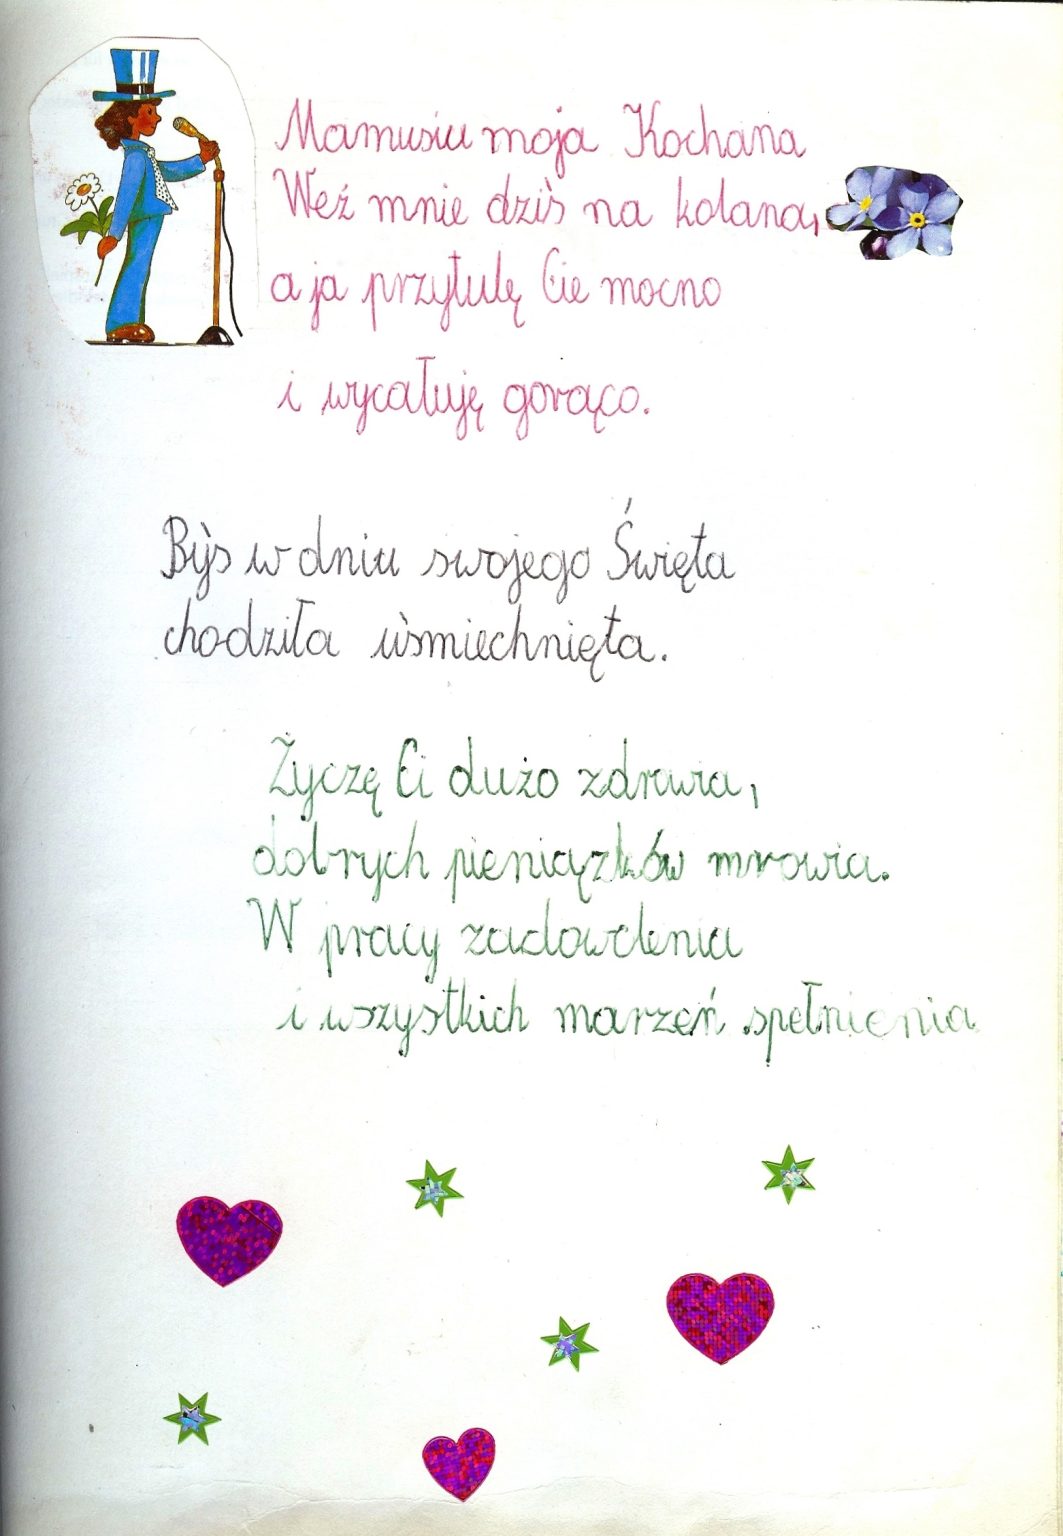 Mamusiu moja Kochana
Weź mnie dziś na kolana,
a ja przytulę Cie mocno
i wycałuję gorąco.
Byś w dniu swojego Święta
chodziła uśmiechnięta.
Życzę Ci dużo zdrowia,
dobrych pieniązków mrowia.
W pracy zadowolenia
i wszystkich marzeń spełnienia